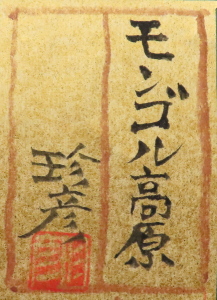 モンゴル高原
珍彦